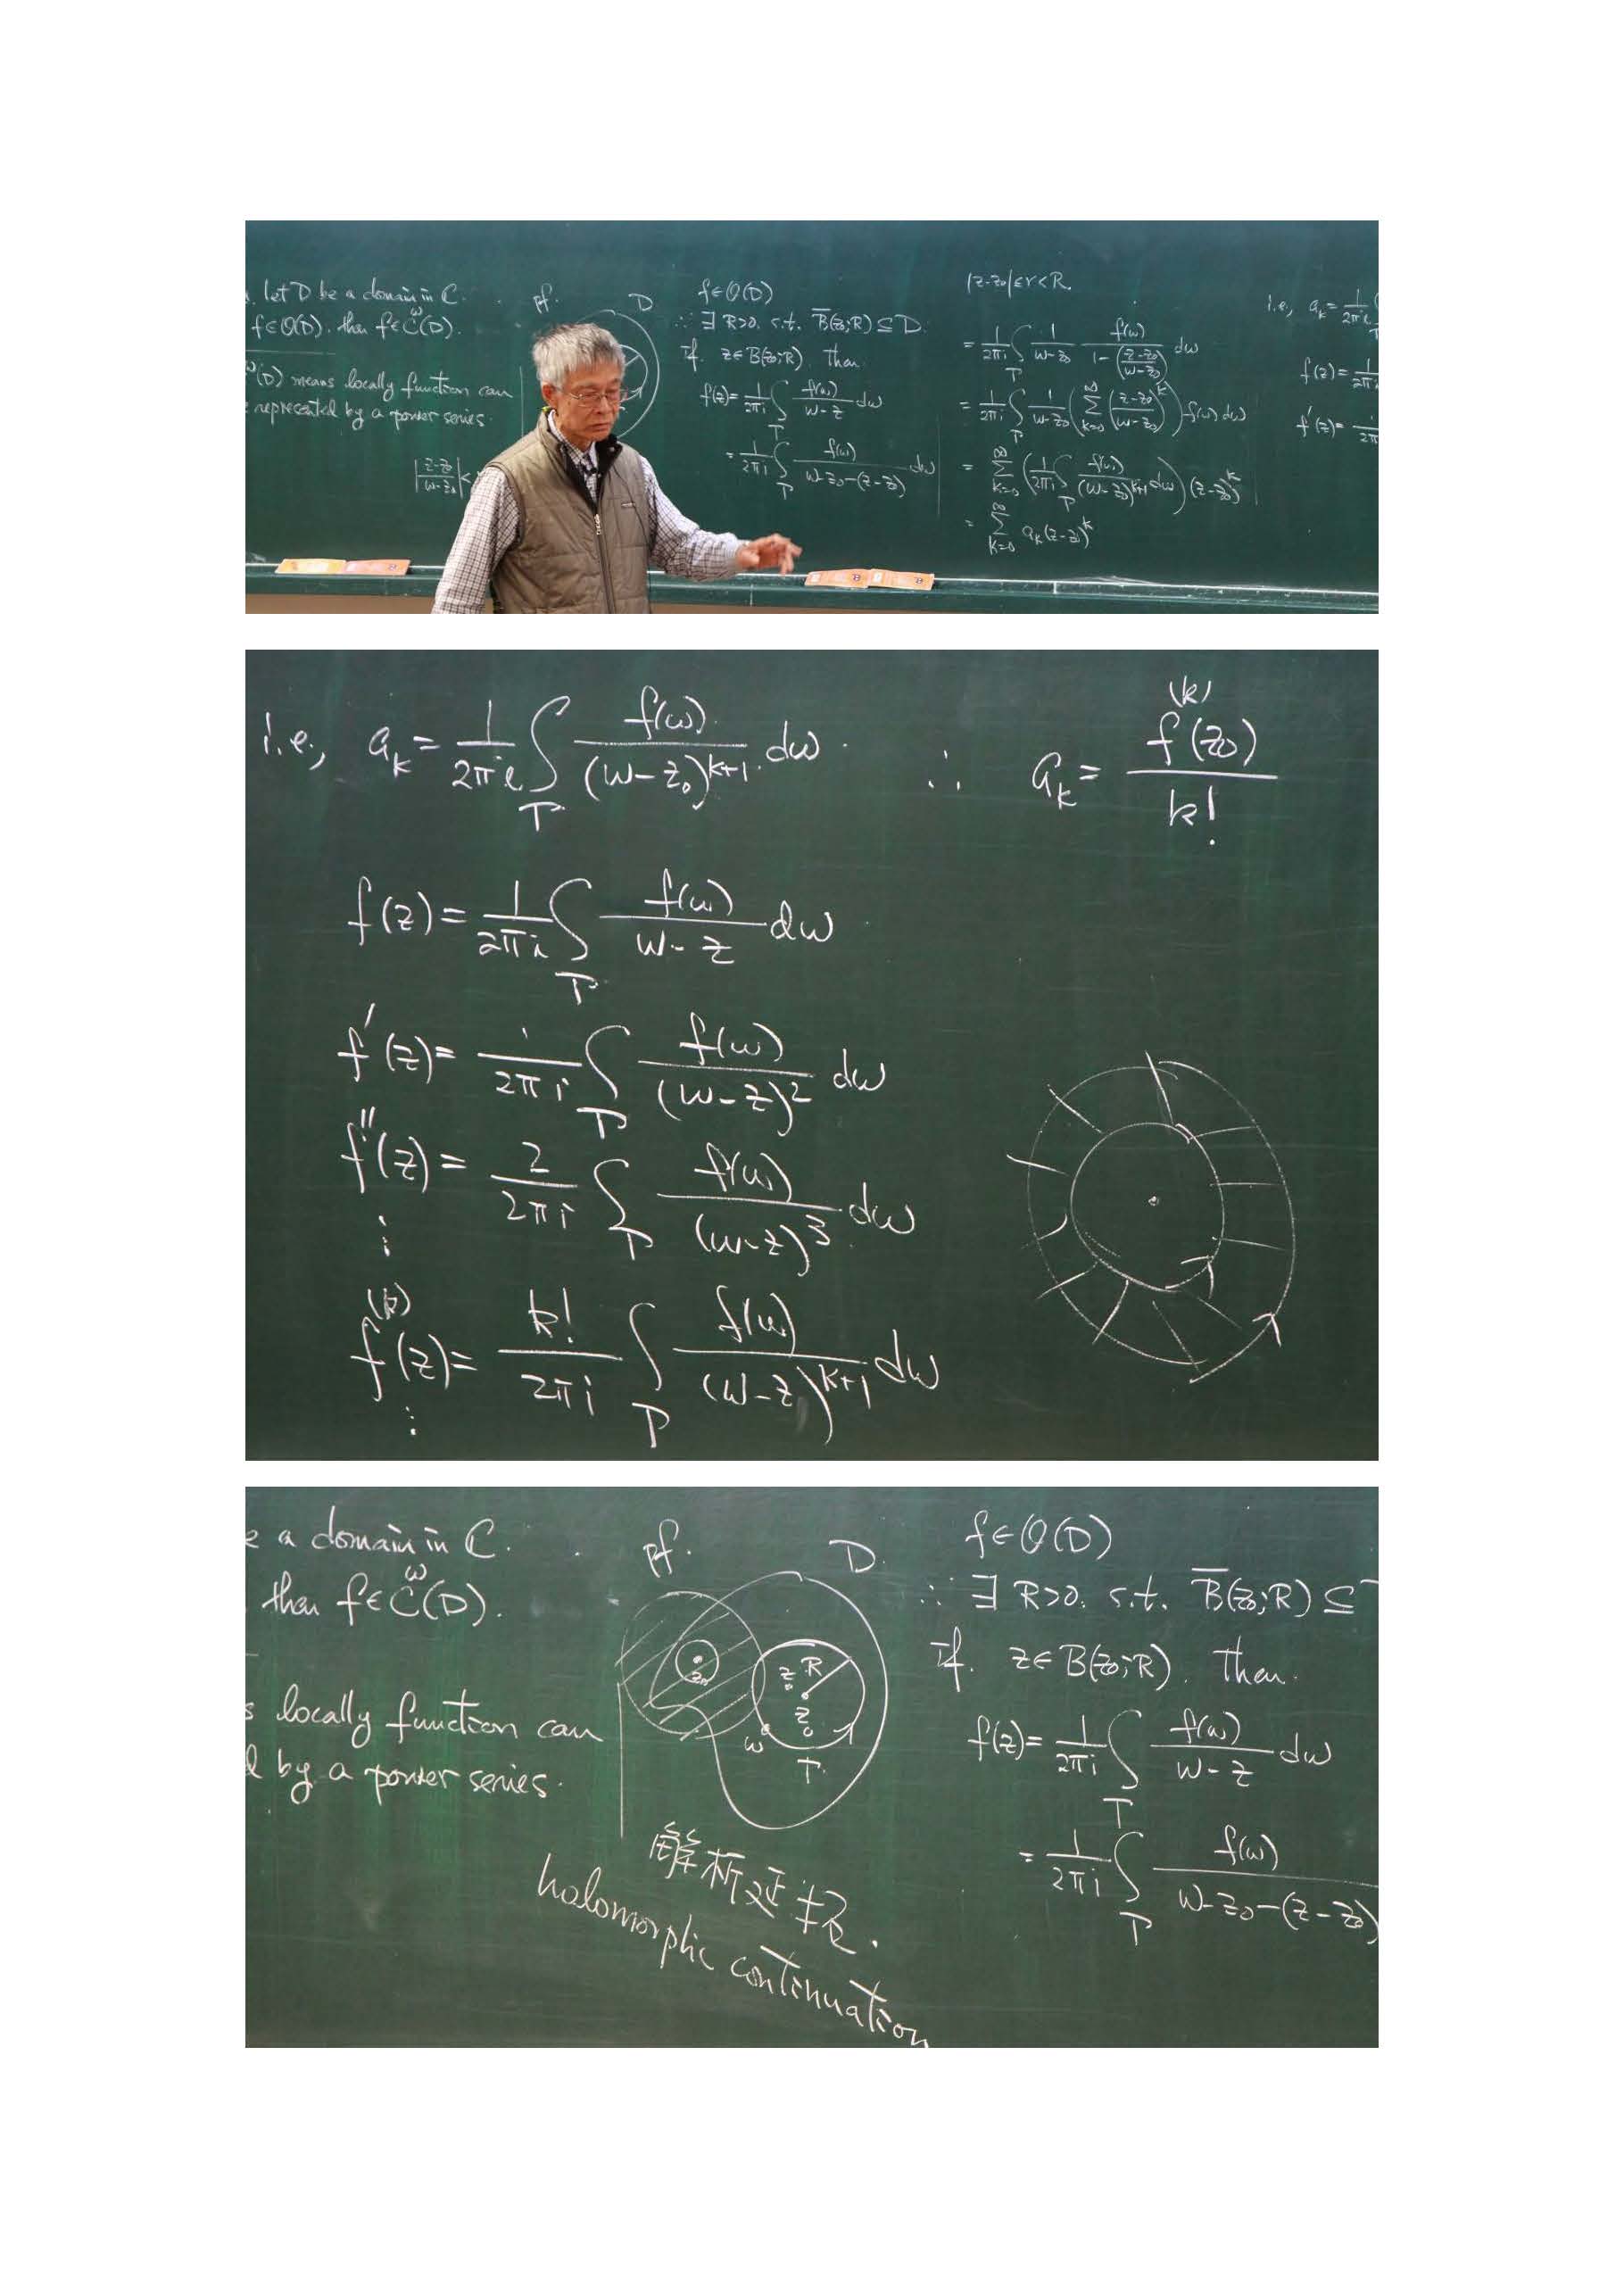 . let D be a domain in ℂ.
f∈O(D). then f∈C^ω(D).
^ω(D) means locally function can
represented by a power series.
|(z-z₀)/(w-z₀)|<
pf. D
f∈O(D)
∴ ∃ R>0. s.t. B̅(z₀;R)⊆D.
If. z∈B(z₀;R). Then.
f(z)=1/(2πi) ∫_Γ f(w)/(w-z) dw
=1/(2πi) ∫_Γ f(w)/(w-z₀-(z-z₀)) dw
|z-z₀|≤r<R.
=1/(2πi) ∫_Γ 1/(w-z₀) f(w)/(1-((z-z₀)/(w-z₀))) dw
=1/(2πi) ∫_Γ 1/(w-z₀) (∑_{k=0}^∞ ((z-z₀)/(w-z₀))^k) f(w) dw
=∑_{k=0}^∞ (1/(2πi) ∫_Γ f(w)/(w-z₀)^{k+1} dw)(z-z₀)^k
=∑_{k=0}^∞ a_k(z-z₀)^k
i.e., a_k=1/(2πi
f(z)=1/(2πi
f'(z)=
i.e., a_k=1/(2πi) ∫_Γ f(w)/(w-z₀)^{k+1} dw. ∴ a_k=f^{(k)}(z₀)/k!
f(z)=1/(2πi) ∫_Γ f(w)/(w-z) dw
f'(z)=1/(2πi) ∫_Γ f(w)/(w-z)² dw
f''(z)=2/(2πi) ∫_Γ f(w)/(w-z)³ dw
⋮
f^{(k)}(z)=k!/(2πi) ∫_Γ f(w)/(w-z)^{k+1} dw
⋮
a domain in ℂ.
then f∈C^ω(D).
locally function can
by a power series.
pf. D.
z R
z₀
w
Γ
解析延拓.
holomorphic continuation
f∈O(D)
∴ ∃ R>0. s.t. B̅(z₀;R)⊆
If. z∈B(z₀;R). Then.
f(z)=1/(2πi) ∫_Γ f(w)/(w-z) dw
=1/(2πi) ∫_Γ f(w)/(w-z₀-(z-z₀))